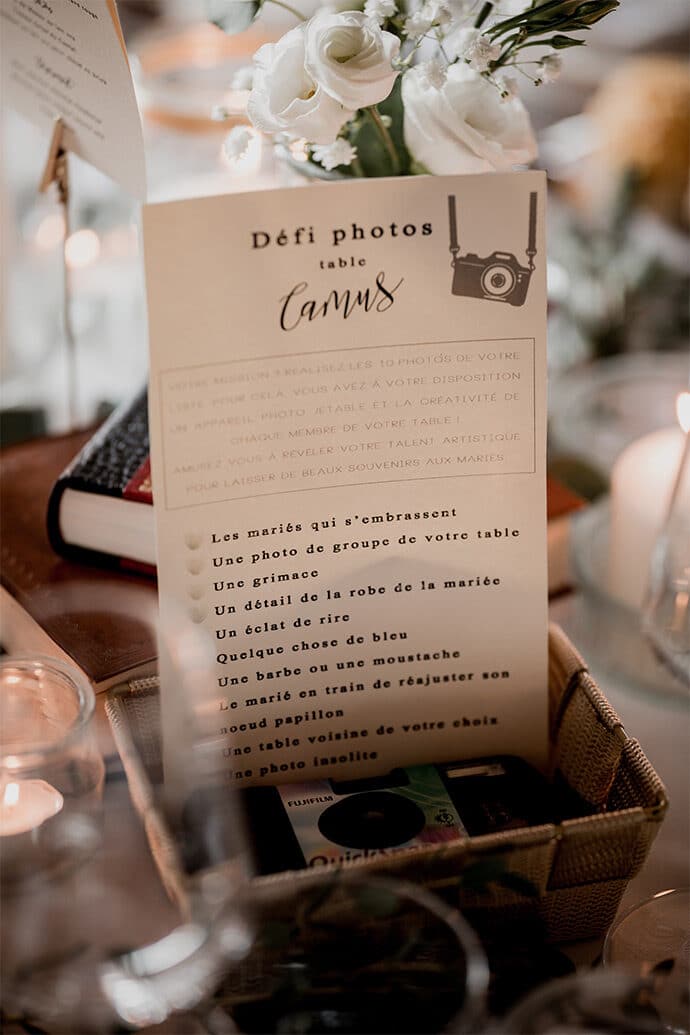 Défi photos
table
Camus
VOTRE MISSION ? RÉALISEZ LES 10 PHOTOS DE VOTRE
LISTE. POUR CELA, VOUS AVEZ À VOTRE DISPOSITION
UN APPAREIL PHOTO JETABLE ET LA CRÉATIVITÉ DE
CHAQUE MEMBRE DE VOTRE TABLE !
AMUSEZ VOUS À RÉVÉLER VOTRE TALENT ARTISTIQUE
POUR LAISSER DE BEAUX SOUVENIRS AUX MARIÉS
Les mariés qui s'embrassent
Une photo de groupe de votre table
Une grimace
Un détail de la robe de la mariée
Un éclat de rire
Quelque chose de bleu
Une barbe ou une moustache
Le marié en train de réajuster son
noeud papillon
Une table voisine de votre choix
Une photo insolite
FUJIFILM